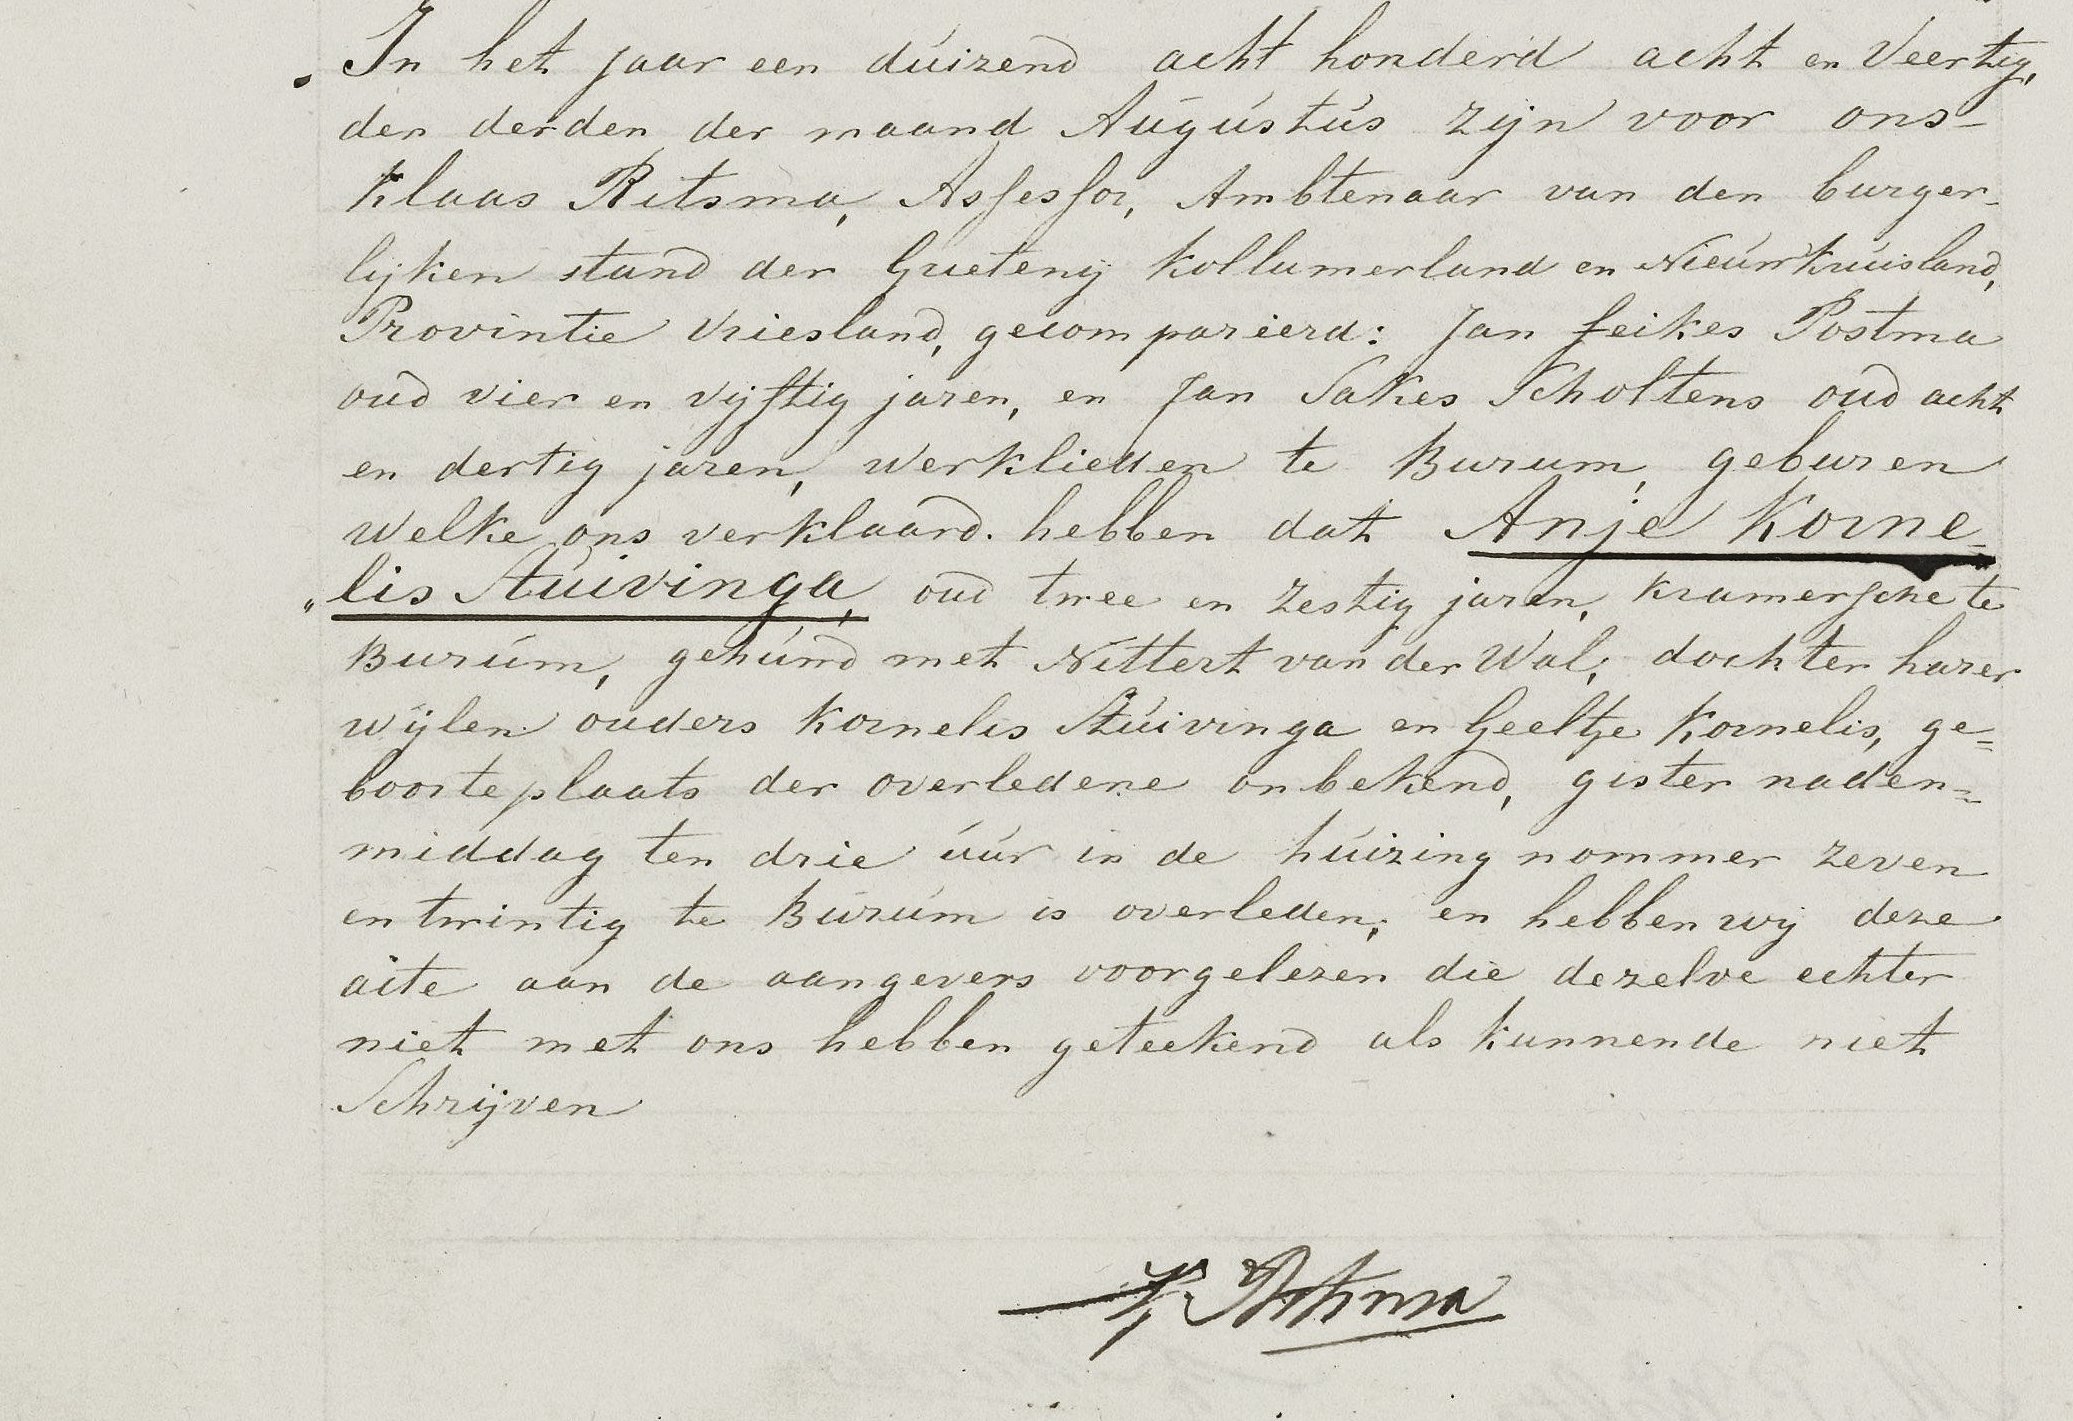 In het jaar een duizend acht honderd acht en Veertig,
den derden der maand Augústús zijn voor ons-
Klaas Ritsma, Assessor, Ambtenaar van den burger-
lijken stand der Grietenij Kollumerland en Nieuwkruisland,
Provintie Vriesland, gecompareerd: Jan Feikes Postma
oud vier en vijftig jaren, en Jan Sakes Scholtens oud acht
en dertig jaren, werklieden te Burum, geburen
welke ons verklaard hebben dat Anje Korne-
„lis Stuivinga, oud twee en zestig jaren, kramersche te
Burúm, gehúwd met Nittert van der Wal, dochter harer
wijlen ouders Kornelis Stúivinga en Geeltje Kornelis, ge=
boorteplaats der overledene onbekend, gister naden=
middag ten drie úúr in de húizing nommer zeven
en twintig te Burúm is overleden; en hebben wij deze
acte aan de aangevers voorgelezen die dezelve echter
niet met ons hebben geteekend als kunnende niet
Schrijven
K. Ritsma